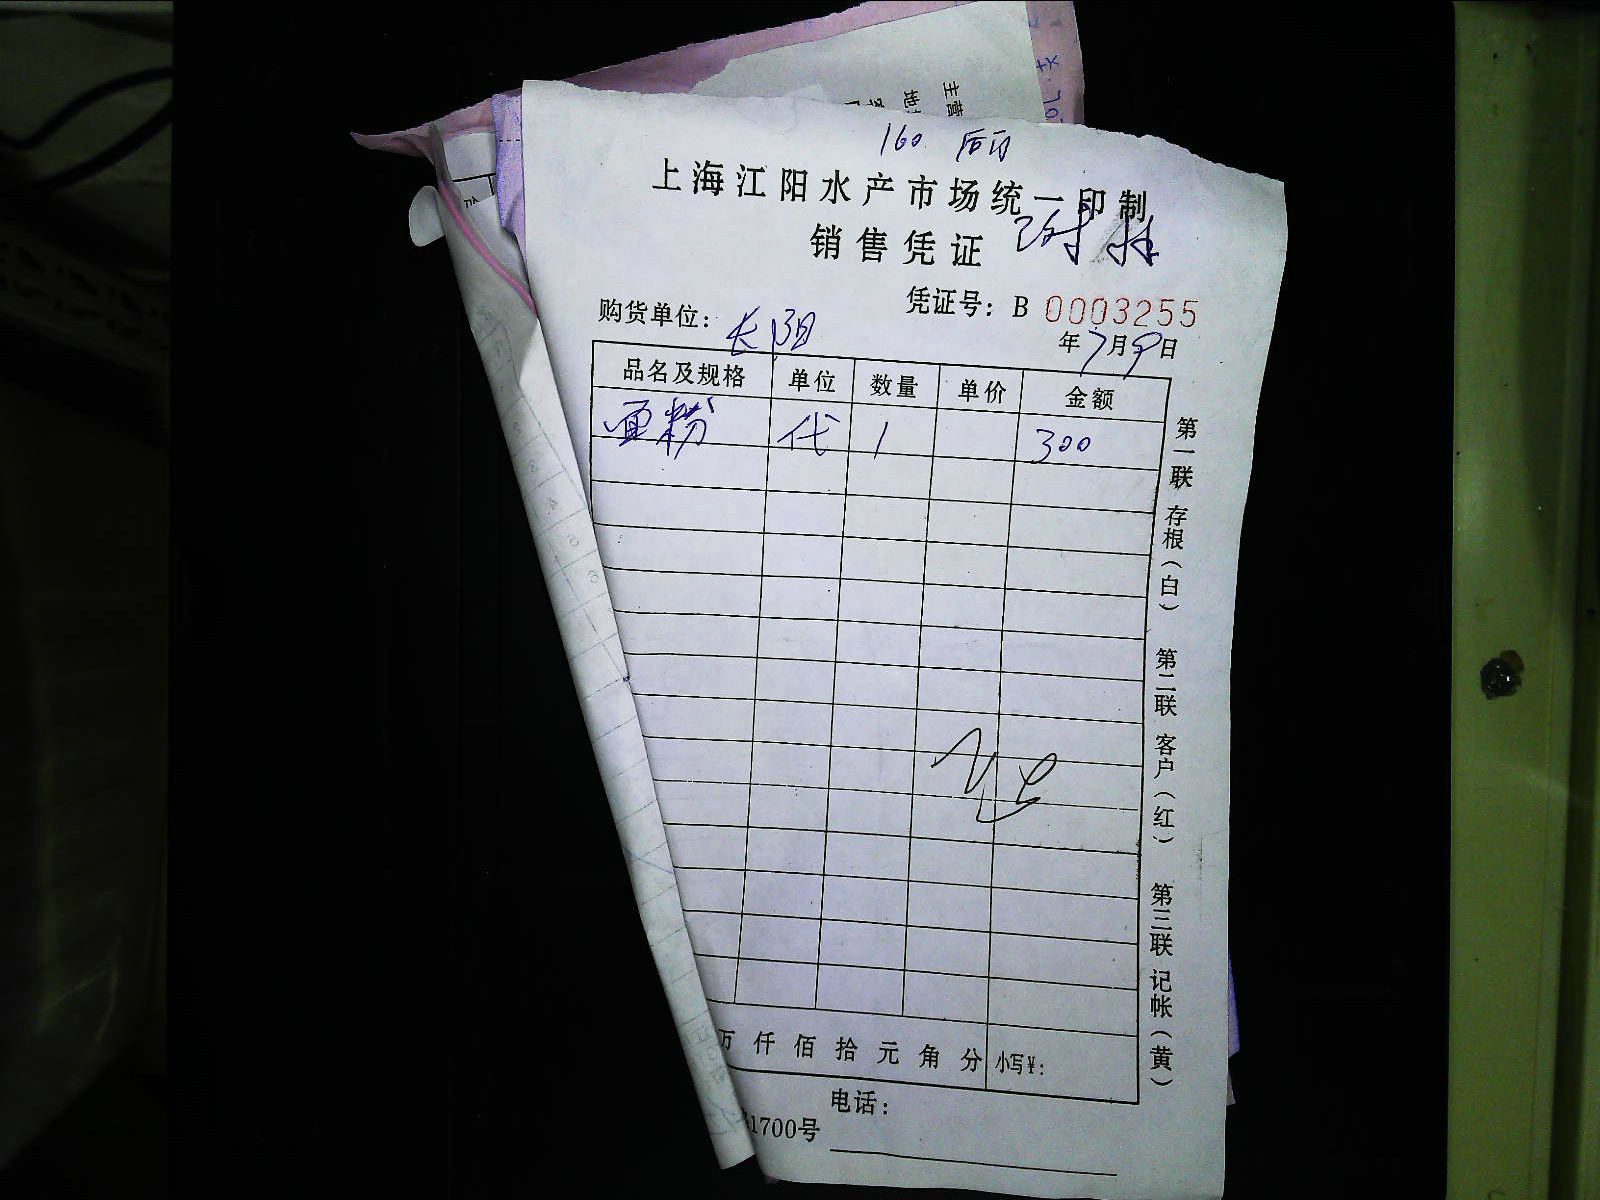 主营
地
160
上海江阳水产市场统一印制
销售凭证
凭证号: B 0003255
购货单位: 长阳
年7月9日
品名及规格 单位 数量 单价 金额
面粉 代 1 300
第一联 存根(白) 第二联 客户(红) 第三联 记帐(黄)
万仟佰拾元角分 小写¥:
电话:
1700号